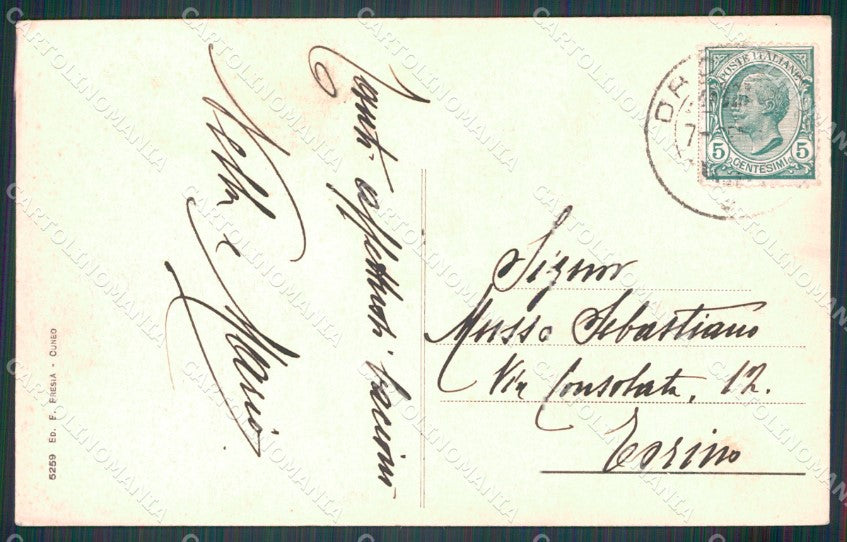 Tanti affettuosi bacioni
Nella e Mario
5259 ED. F. FRESIA - CUNEO
POSTE ITALIANE
5 5
CENTESIMI
Signor
Musso Sebastiano
Via Consolata, 12.
Torino
CARTOLINOMANIA